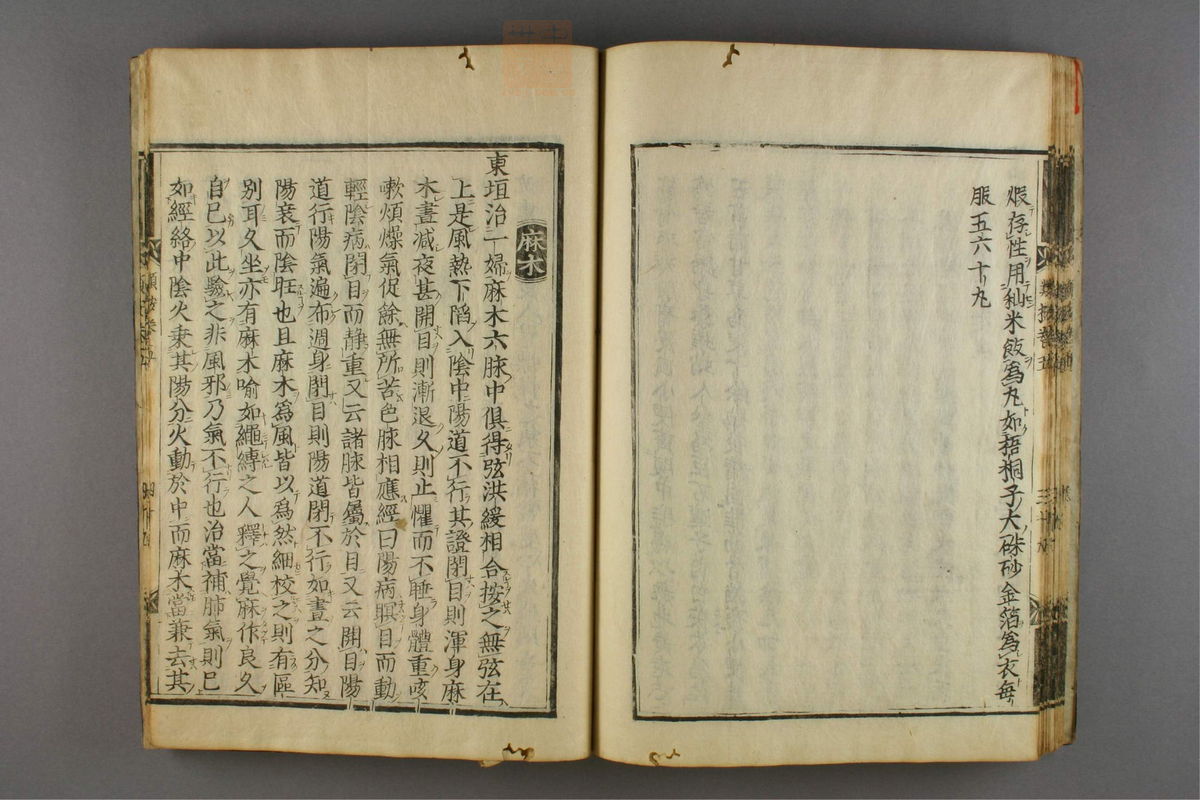 煆存性用秈米飯爲丸如梧桐子大硃砂金箔爲衣每
服五六十丸
麻木
東垣治一婦麻木六脉中俱得弦洪緩相合按之無弦在
上是風熱下陷入陰中陽道不行其證閉目則渾身麻
木晝減夜甚開目則漸退久則止懼而不睡身體重咳
嗽煩燥氣促餘無所苦色脉相應經曰陽病瞑目而動
輕陰病閉目而静重又云諸脉皆屬於目又云開目陽
道行陽氣遍布週身閉目則陽道閉不行如晝之分知
陽衰而陰旺也且麻木爲風皆以爲然細校之則有區
別耳久坐亦有麻木喻如繩縛之人釋之覺麻作良久
自已以此驗之非風邪乃氣不行也治當補肺氣則已
如經絡中陰火乗其陽分火動於中而麻木當兼去其